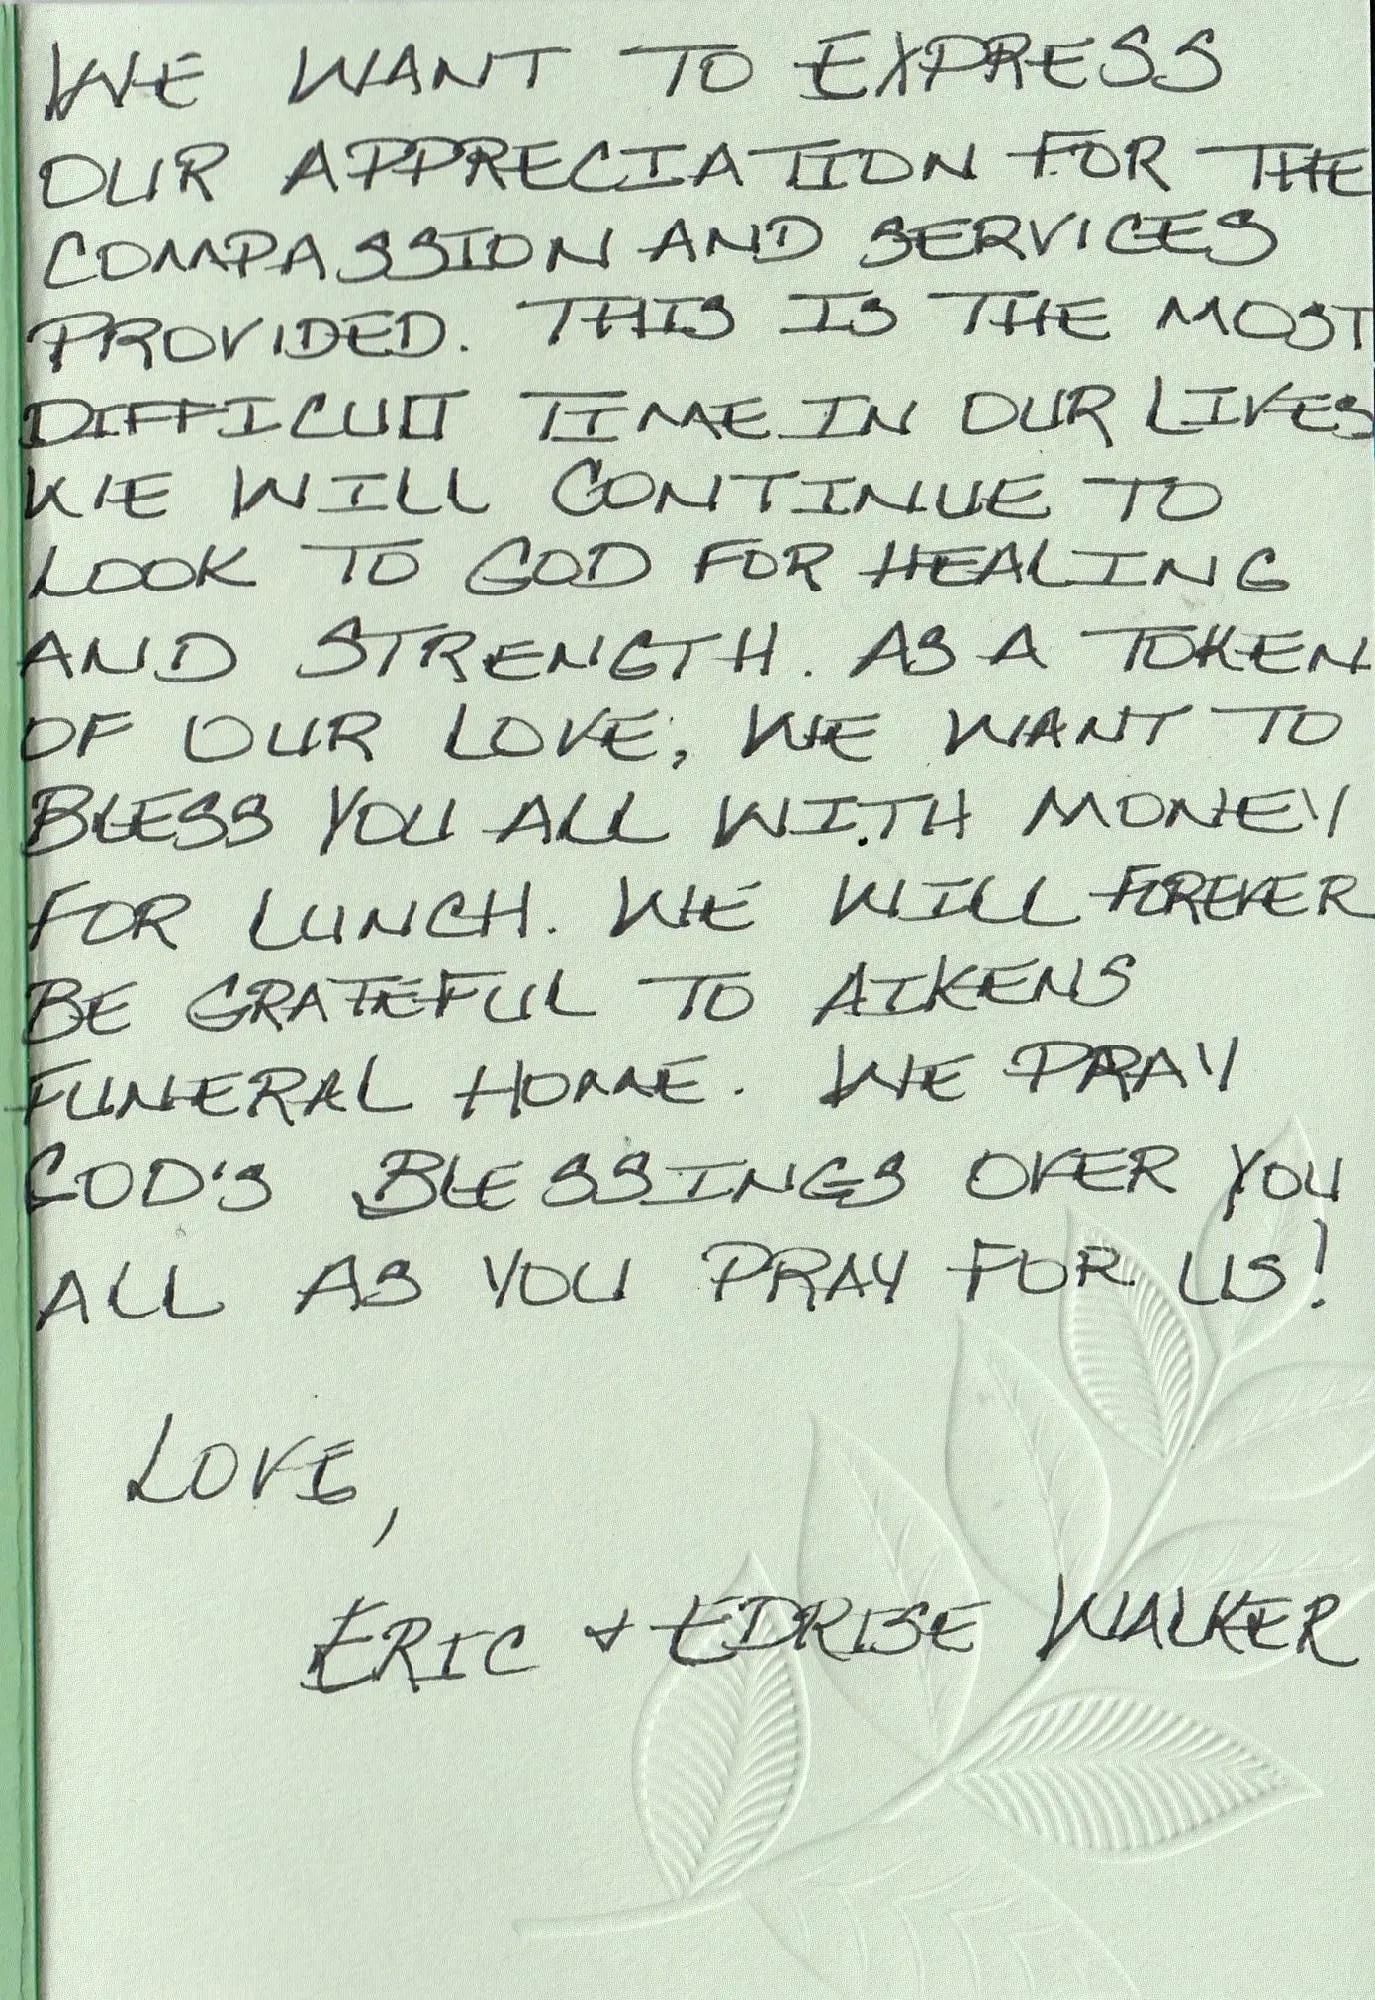 WE WANT TO EXPRESS
OUR APPRECIATION FOR THE
COMPASSION AND SERVICES
PROVIDED. THIS IS THE MOST
DIFFICULT TIME IN OUR LIVES
WE WILL CONTINUE TO
LOOK TO GOD FOR HEALING
AND STRENGTH. AS A TOKEN
OF OUR LOVE, WE WANT TO
BLESS YOU ALL WITH MONEY
FOR LUNCH. WE WILL FOREVER
BE GRATEFUL TO AIKENS
FUNERAL HOME. WE PRAY
GOD'S BLESSINGS OVER YOU
ALL AS YOU PRAY FOR US!
LOVE,
ERIC + EDRISE WALKER